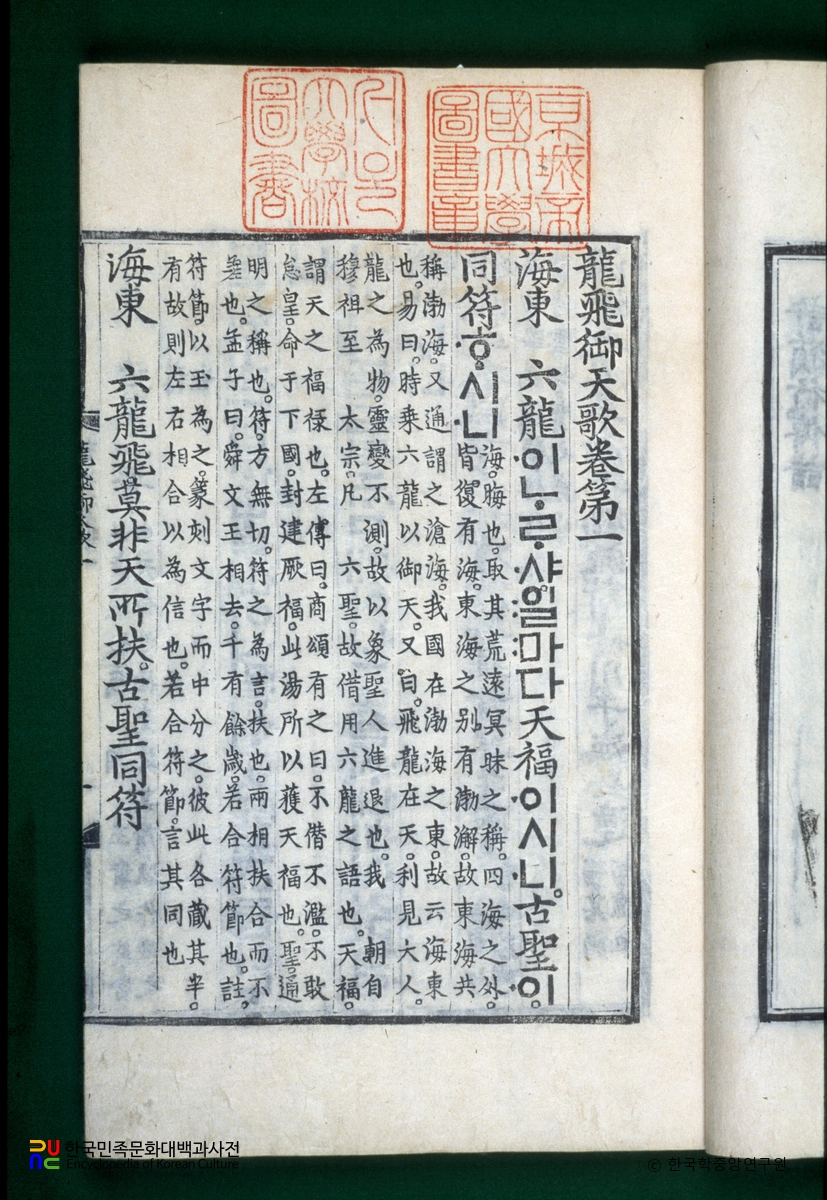 京城帝
國大學
圖書章
서울
大學校
圖書
龍飛御天歌卷第一
海東 六龍·이ᄂᆞᄅᆞ·샤:일:마다天福·이시·니。古聖·이
同符·ᄒᆞ·시·니
海晦也。取其荒遠冥昧之稱。四海之外。
皆復有海。東海之别有渤澥。故東海共
稱渤海。又通謂之滄海。我國在渤海之東。故云海東
也。易曰。時乘六龍以御天。又曰。飛龍在天。利見大人。
龍之為物。靈變不測。故以象聖人進退也。我 朝自
穆祖至 太宗。凡 六聖。故借用六龍之語也。天福。
謂天之福禄也。左傳曰。商頌有之曰。不僭不濫。不敢
怠皇。命于下國。封建厥福。此湯所以獲天福也。聖。通
明之稱也。符。方無切。符之為言。扶也。兩相扶合而不
差也。孟子曰。舜文王相去。千有餘歲。若合符節也。註。
符節。以玉為之。篆刻文字而中分之。彼此各藏其半。
有故則左右相合以為信也。若合符節。言其同也
海東 六龍飛莫非天所扶。古聖同符
한국민족문화대백과사전
Encyclopedia of Korean Culture
© 한국학중앙연구원